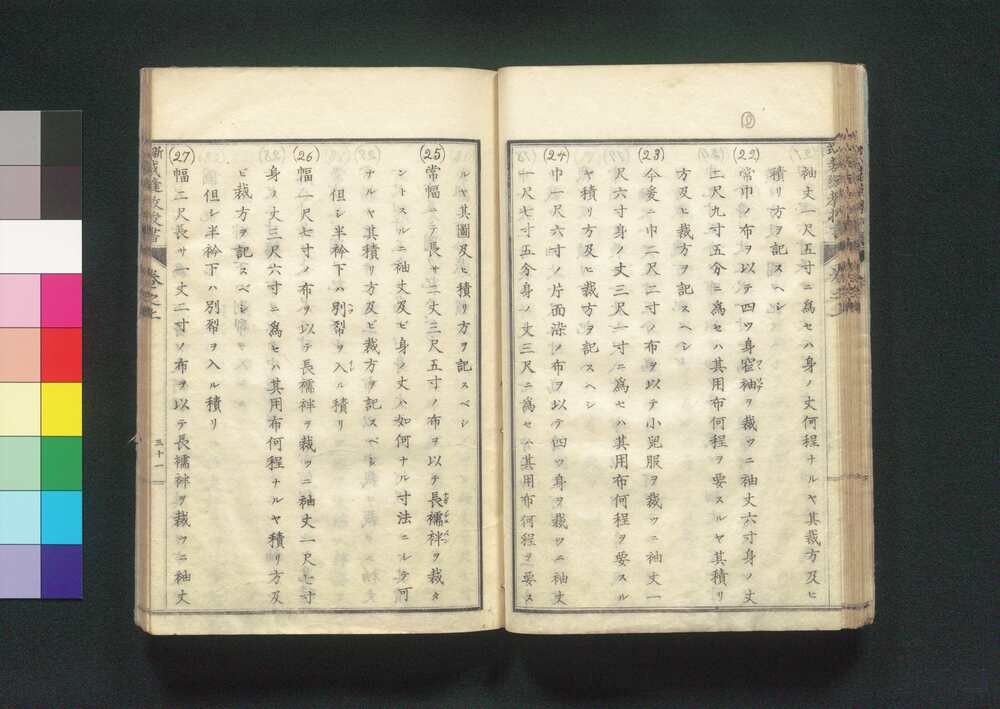 袖丈一尺五寸ニ爲セハ身ノ丈何程ナルヤ其裁方及ヒ
積リ方ヲ記スヘシ
(22) 常巾ノ布ヲ以テ四ツ身窄袖ヲ裁ツニ袖丈六寸身ノ丈
二尺九寸五分ニ爲セハ其用布何程ヲ要スルヤ其積リ
方及ヒ裁方ヲ記スヘシ
(23) 今爰ニ巾二尺二寸ノ布ヲ以テ小兒服ヲ裁ツニ袖丈一
尺六寸身ノ丈三尺一寸ニ爲セハ其用布何程ヲ要スル
ヤ積リ方及ヒ裁方ヲ記スヘシ
(24) 巾一尺六寸ノ片面染ノ布ヲ以テ四ツ身ヲ裁ツニ袖丈
一尺七寸五分身ノ丈三尺ニ爲セハ其用布何程ヲ要ス
ルヤ其圖及ヒ積リ方ヲ記スベシ
(25) 常幅ニテ長サ二丈三尺五寸ノ布ヲ以テ長襦袢ヲ裁タ
ントスルニ袖丈及ビ身ノ丈ハ如何ナル寸法ニシテ可
ナルヤ其積リ方及ビ裁方ヲ記スベシ
但シ半衿下ハ別裂ヲ入ル積リ
(26) 幅一尺七寸ノ布ヲ以テ長襦袢ヲ裁ツニ袖丈一尺七寸
身ノ丈三尺六寸ニ爲セハ其用布何程ナルヤ積リ方及
ビ裁方ヲ記スベシ
但シ半衿下ハ別裂ヲ入ル積リ
(27) 幅二尺長サ一丈二寸ノ布ヲ以テ長襦袢ヲ裁ツニ袖丈
裁縫教授書
卷之上
三十一